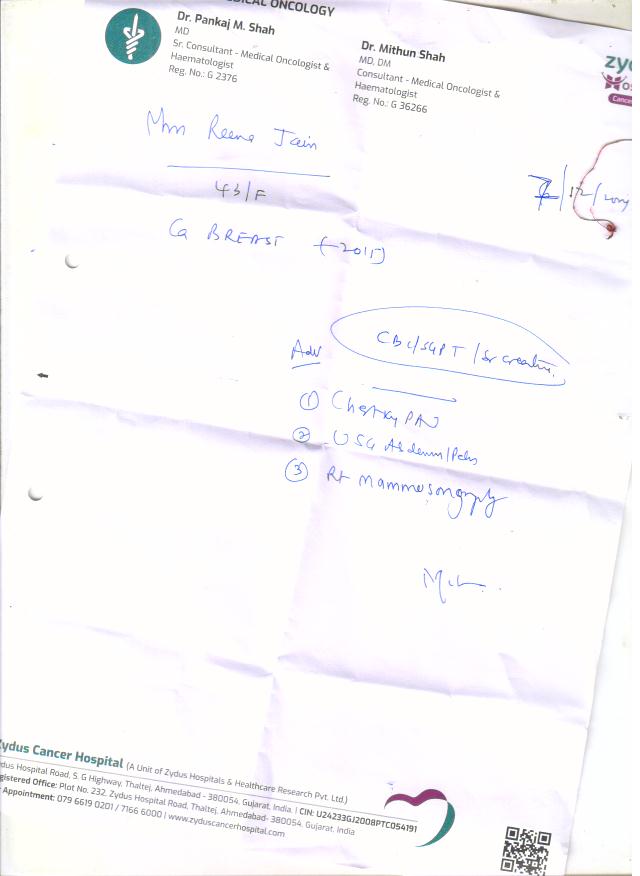 MEDICAL ONCOLOGY
Dr. Pankaj M. Shah
MD
Sr. Consultant - Medical Oncologist &
Haematologist
Reg. No.: G 2376
Dr. Mithun Shah
MD, DM
Consultant - Medical Oncologist &
Haematologist
Reg. No.: G 36266
zy
Hos
Cance
Reena Jain
43/F
/12/
Ca BREAST (-2015)
Adv
CBC/SGPT/Sr creatinine
① Chest Xray PA
② USG Abdomen/Pelvis
③ Rt Mammosonography
Zydus Cancer Hospital (A Unit of Zydus Hospitals & Healthcare Research Pvt. Ltd.)
dus Hospital Road, S. G Highway, Thaltej, Ahmedabad - 380054, Gujarat, India. | CIN: U24233GJ2008PTC054191
gistered Office: Plot No. 232, Zydus Hospital Road, Thaltej, Ahmedabad - 380054, Gujarat, India
Appointment: 079 6619 0201 / 7166 6000 | www.zyduscancerhospital.com